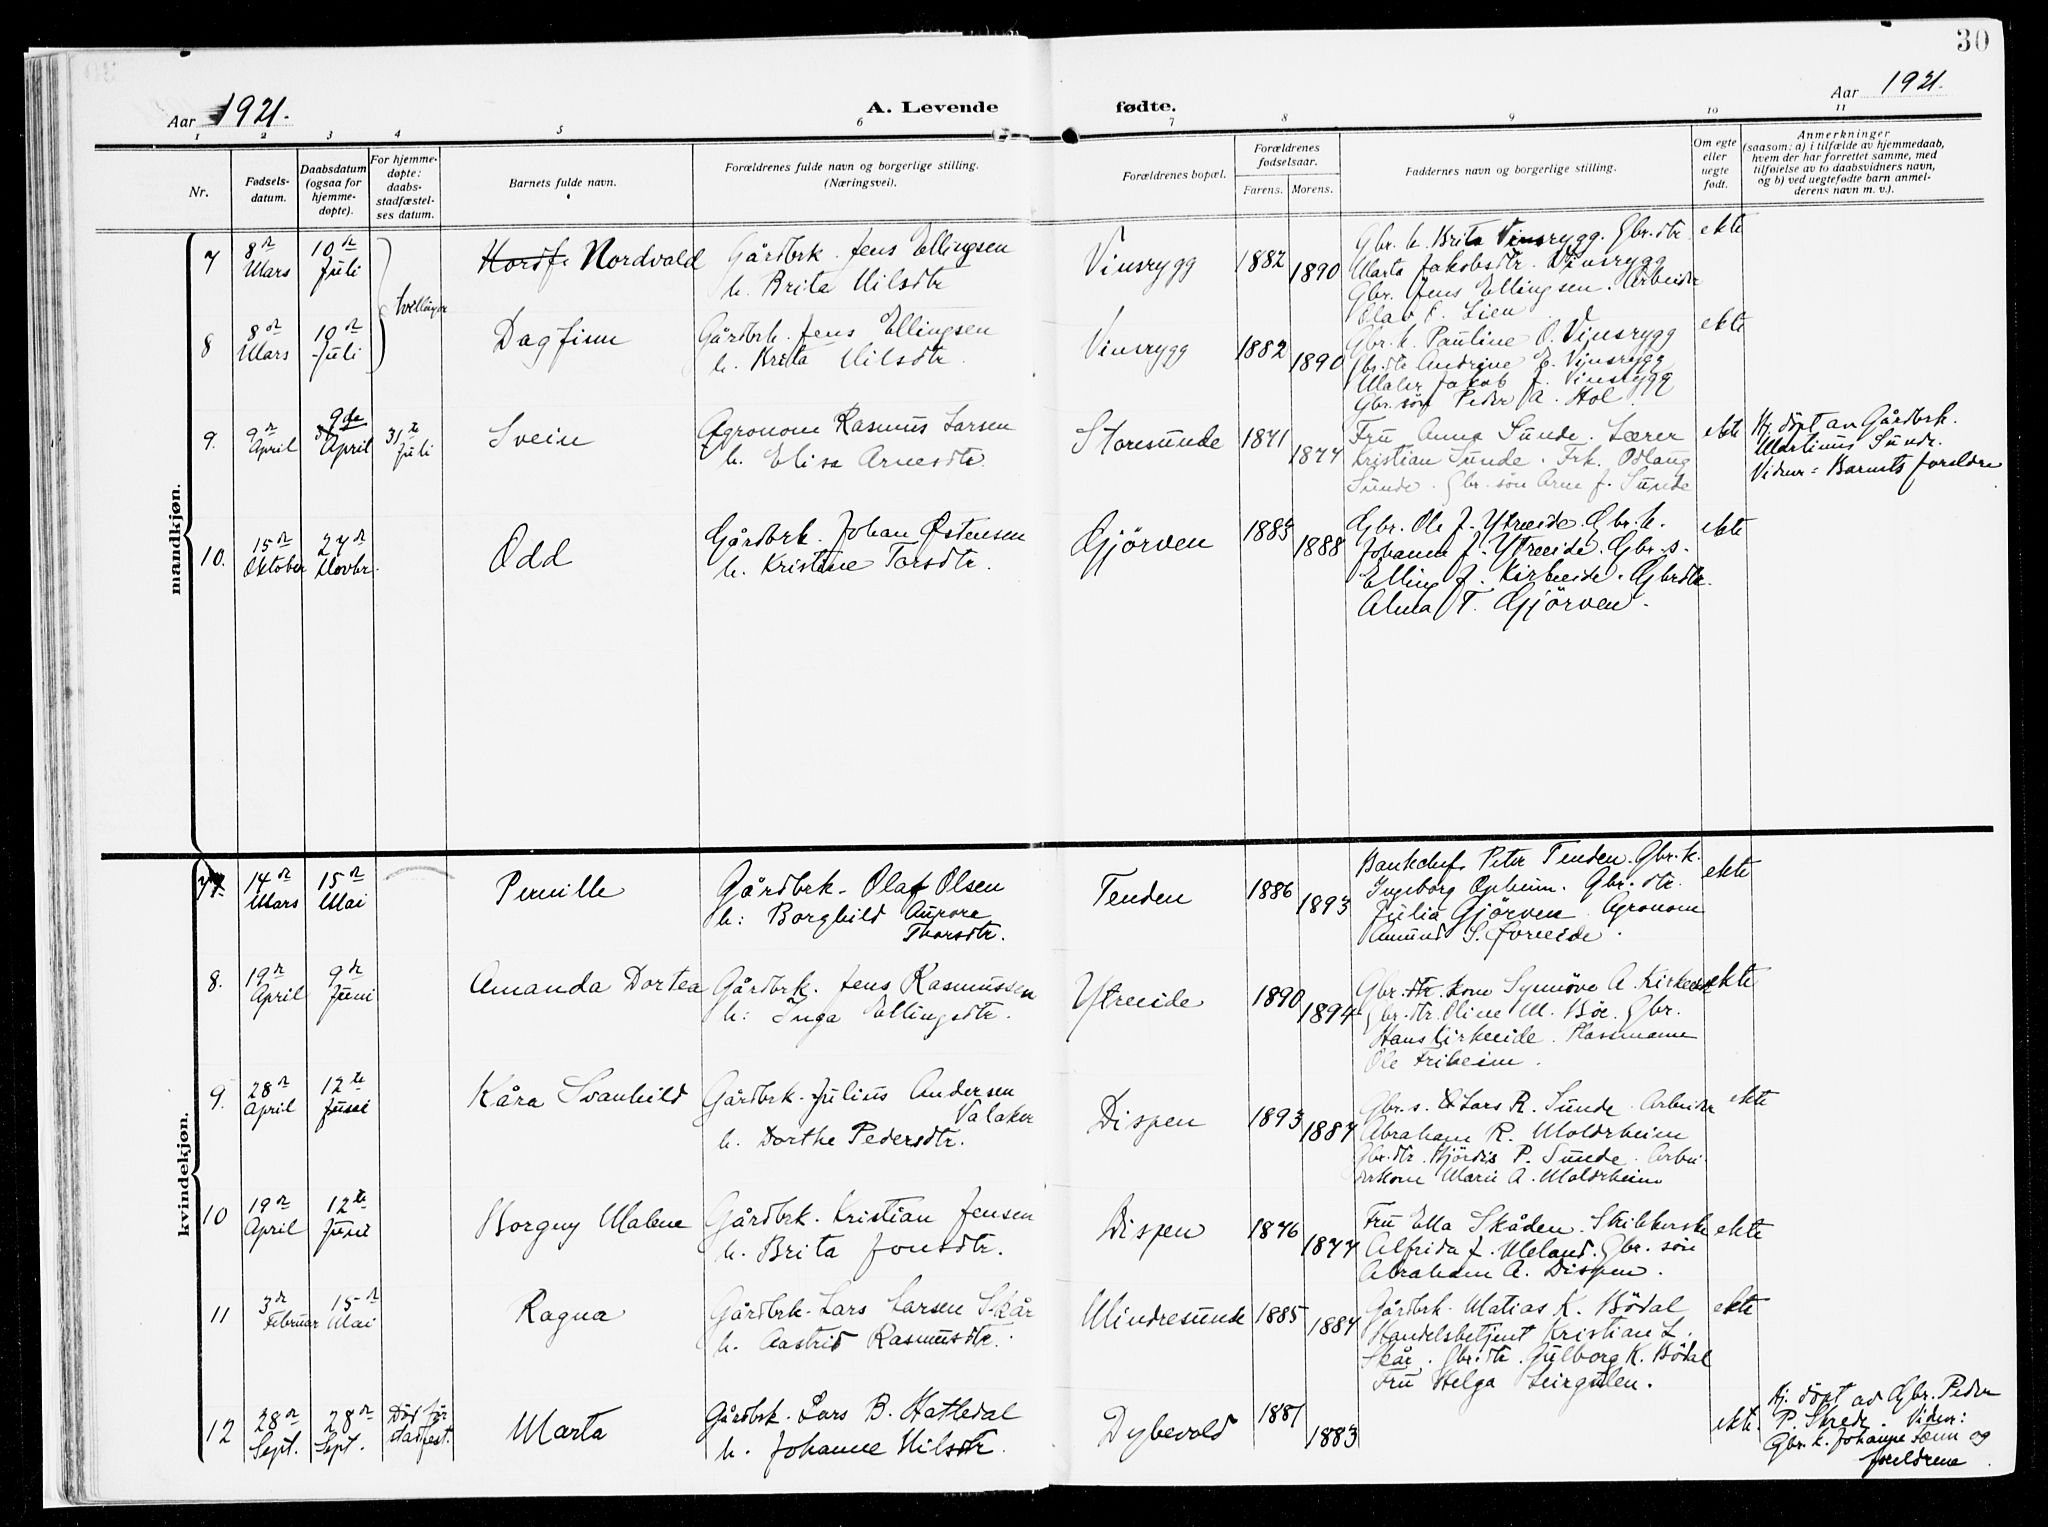 30
Aar 1921.
A. Levende fødte.
Aar 1921.
1 2 3 4 5 6 7 8 9 10 11
Nr.
Fødsels-
datum.
Daabsdatum
(ogsaa for
hjemme-
døpte).
For hjemme-
døpte:
daabs-
stadfæstel-
ses datum.
Barnets fulde navn.
Forældrenes fulde navn og borgerlige stilling.
(Næringsvei).
Forældrenes bopæl.
Forældrenes
fødselsaar.
Farens. Morens.
Faddernes navn og borgerlige stilling.
Om egte
eller
uegte
født.
Anmerkninger
(saasom: a) i tilfælde av hjemmedaab,
hvem der har forrettet samme, med
tilføielse av to daabsvidners navn,
og b) ved uegtefødte barn anmel-
derens navn m. v.).
mandkjøn.
7
8de
Mars
10de
Juli
Tvillinger
Nordvald
Gårdbrk. Jens Ellingsen
h. Brita Nilsdtr
Vinsrygg
1882
1890
Gbr. k. Brita Vinsrygg. Gbr.dtr
Marta Jakobsdtr. Vinsrygg
Gbr. Jens Ellingsen. Arbeider
Olav Lien
ekte
8
8de
Mars
10de
Juli
Dagfinn
Gårdbrk. Jens Ellingsen
h. Brita Nilsdtr.
Vinsrygg
1882
1890
Gbr. k. Pauline O. Vinsrygg
Gbr.dtr Andrine E. Vinsrygg
Maler Jakob J. Vinsrygg
Gbr. søn Peder A. Hol
ekte
9.
9de
April
9de
April
31te
Juli
Svein
Agronom Rasmus Larsen
h. Elisa Arnesdtr.
Storesunde
1871
1877
Fru Anna Sunde. Lærer
Kristian Sunde. Frk. Odlaug
Sunde. Gbr. søn Arne J. Sunde
ekte
Hj. döpt av Gårdbrk.
Martinus Sunde.
Vidner: Barnets foreldre
10.
15de
Oktober
27de
Novbr.
Odd
Gårdbrk. Johan Østensen
h. Kristine Torsdtr.
Gjörven
1883
1888
Gbr. Ole J. Ytreeide. Gbr. k.
Johanna J. Ytreeide. Gbr. s.
Elling J. Kirkeeide. Gbrdtr.
Alma T. Gjörven.
ekte
kvindekjøn.
7.
14de
Mars
15de
Mai
Pernille
Gårdbrk. Olaf Olsen
h: Borghild Aurora
Thorsdtr.
Tenden
1886
1893
Bankchef Peter Tenden. Gbr. k.
Ingeborg Opheim. Gbr. dtr.
Julia Gjörven. Agronom
Amund S.
ekte
8.
19de
April
9de
Juni
Amanda Dortea
Gårdbrk. Jens Rasmussen
h: Inga Ellingsdtr.
Ytreeide
1890
1894
Gbr. kone Synnöve A. Kirkeeide
Gbr. dtr. Oline M. Böe. Gbr.
Hans Kirkeeide. Plassmann
Ole Friheim.
ekte
9.
28de
April
12te
Juni
Kåra Svanhild
Gårdbrk. Julius Andersen
Valaker
h. Dorthe Pedersdtr.
Dispen
1893
1887
Gbr. s. Lars R. Sunde. Arbeider
Abraham R. Moldrheim
Gbr. dtr. Hjördis P. Sunde. Arbei-
derkone Marie A. Moldrheim
ekte
10
19de
April
12te
Juni
Borgny Malene
Gårdbrk. Kristian Jensen
h. Brita Jonsdtr.
Dispen
1876
1877
Fru Ella Skåden. Strikkerske
Alfrida J. Meland. Gbr. søn
Abraham A. Dispen.
ekte
11
3de
Februar
15de
Mai
Ragna
Gårdbrk. Lars Larsen Skår
h. Aastrid Rasmusdtr.
Mindresunde
1885
1887
Gårdbrk. Matias K. Bödal
Handelsbetjent Kristian L.
Skår. Gbr. dtr. Gulborg K. Bödal
Fru Helga Leirgulen.
ekte
12
28de
Sept.
28de
Sept.
Död för
stadfest.
Marta
Gårdbrk. Lars B. Hatledal
h. Johanne Nilsdtr.
Dybevold
1881
1883
ekte.
Hj. döpt av Gbr. Peder
P. Skrede. Vidner:
Gbr. k. Johanne og
foreldrene